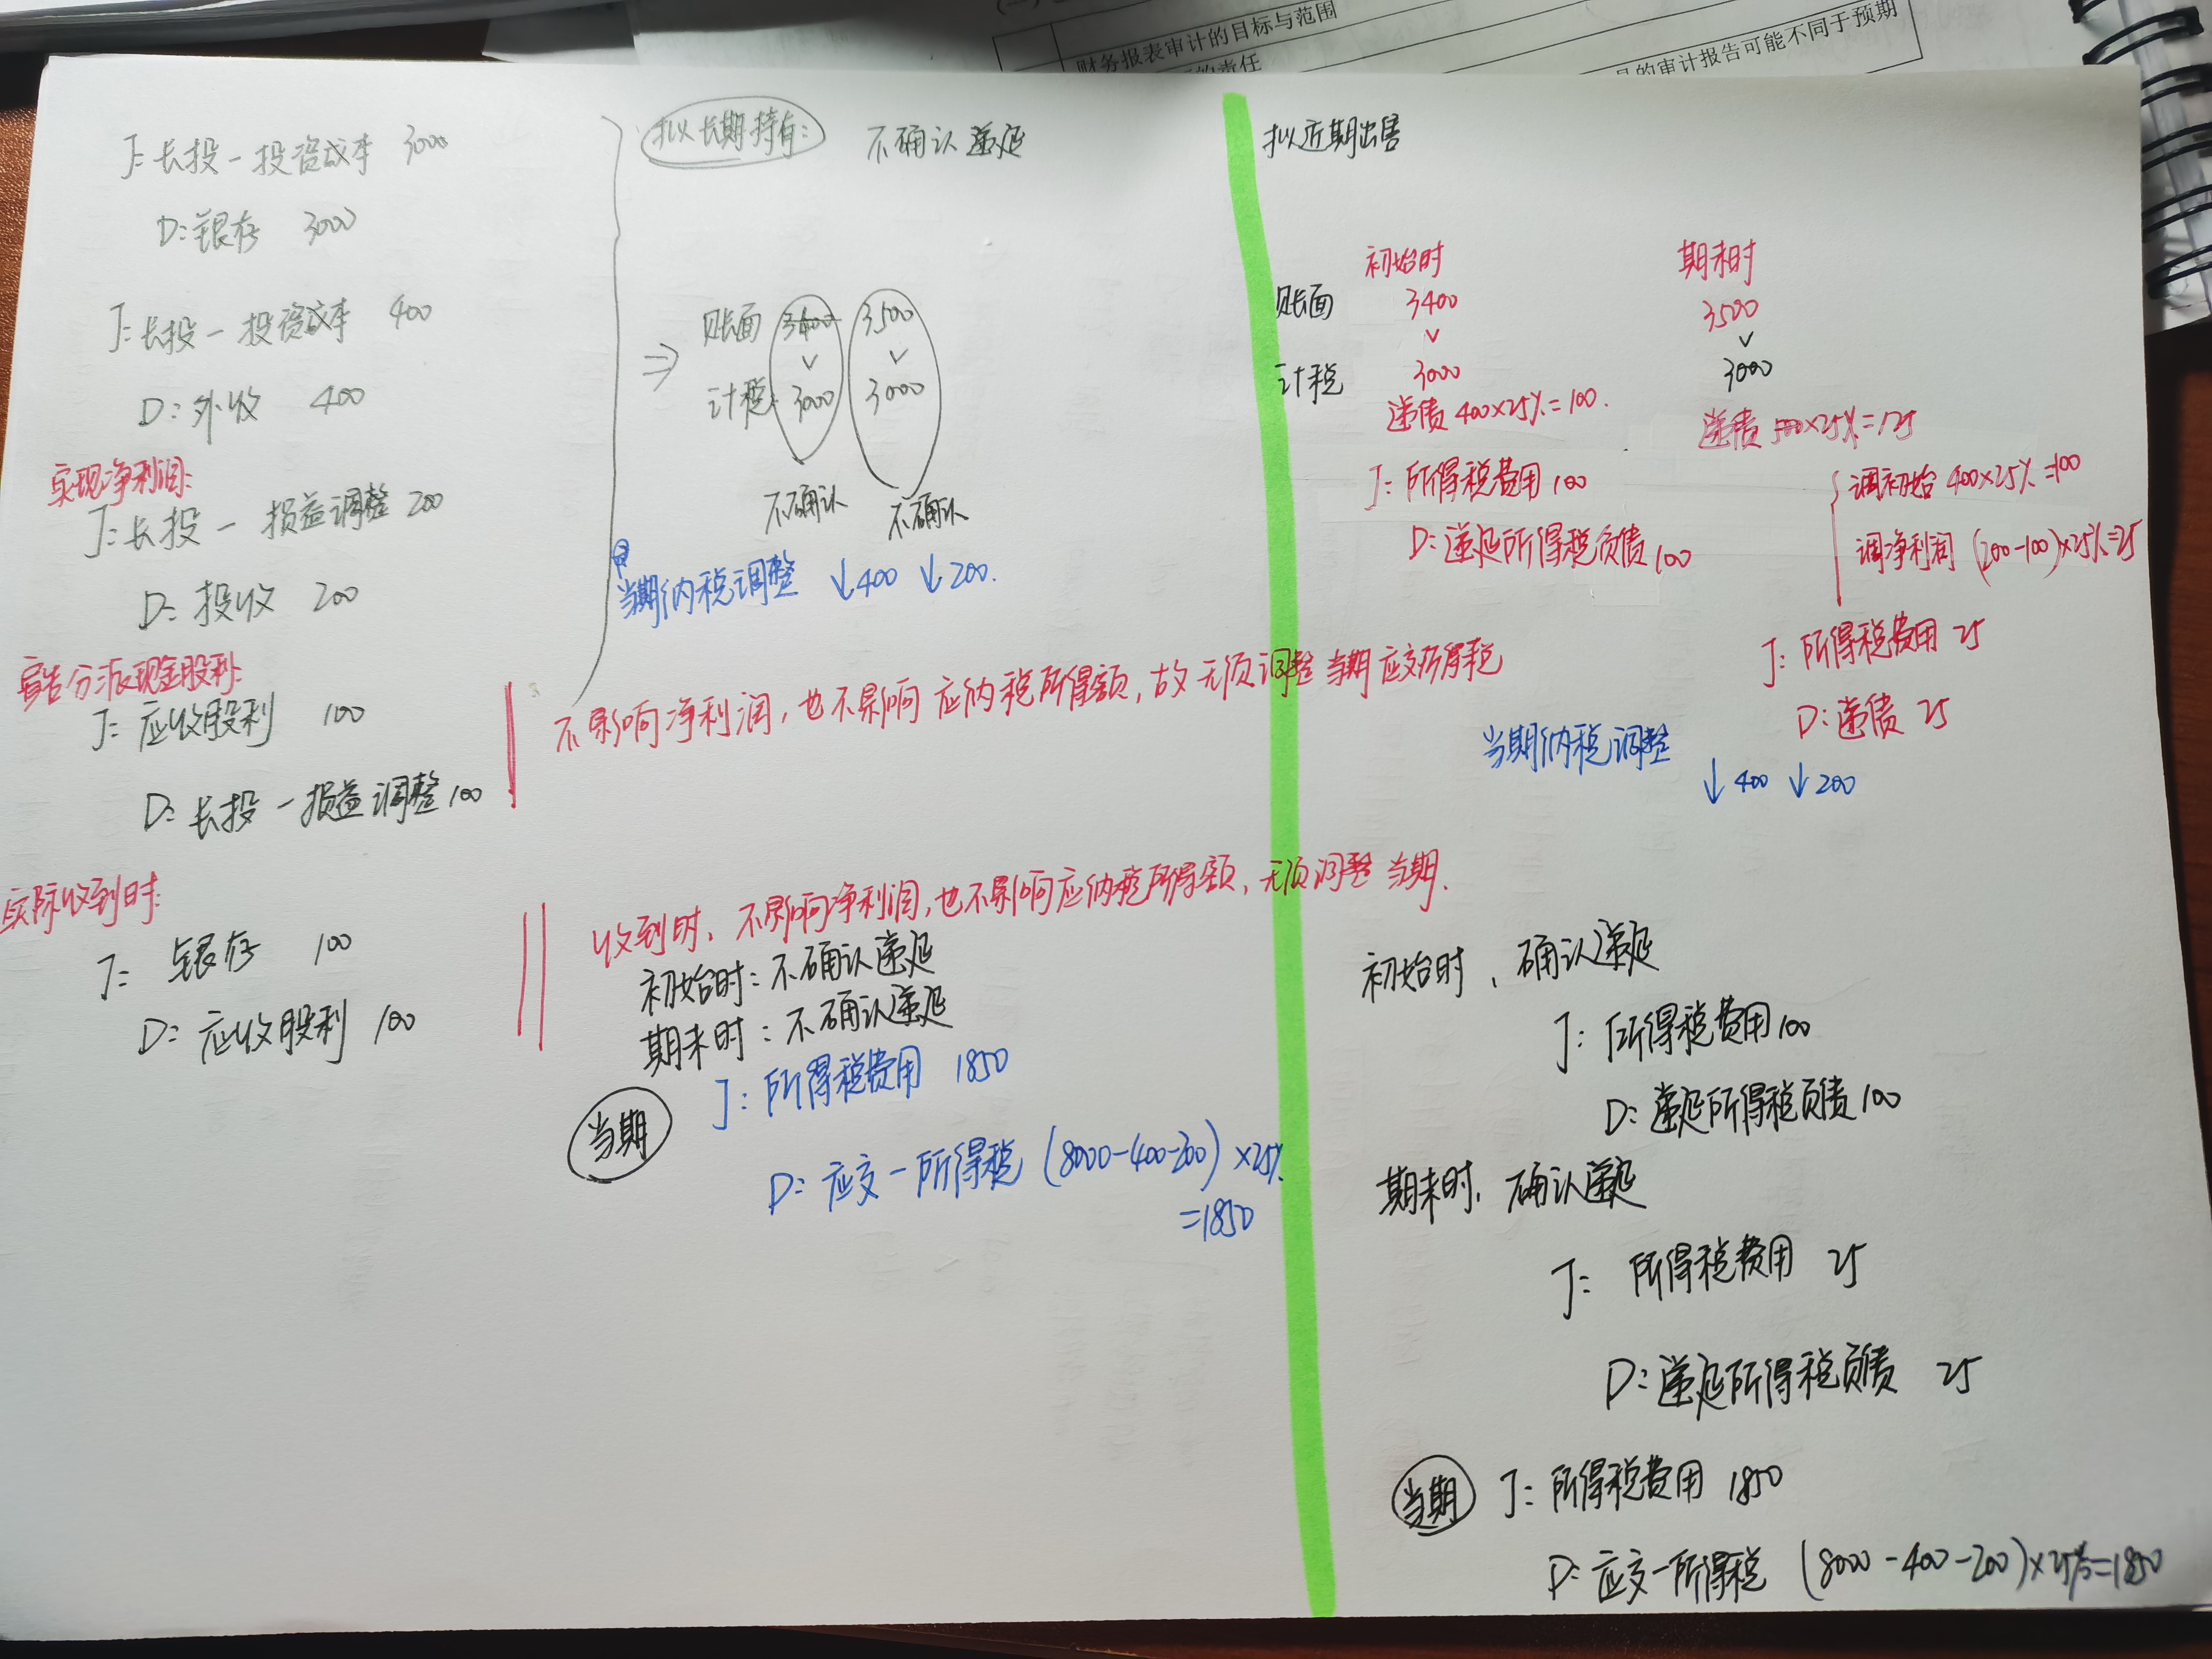 财务报表审计的目标与范围
的责任
具的审计报告可能不同于预期
J: 长投-投资成本 3000
D: 银存 3000
J: 长投-投资成本 400
D: 外收 400
实现净利润:
J: 长投-损益调整 200
D: 投收 200
宣告分派现金股利:
J: 应收股利 100
D: 长投-损益调整 100
实际收到时:
J: 银存 100
D: 应收股利 100
拟长期持有: 不确认递延
⇒ 账面 3400 3500
∨ ∨
计税: 3000 3000
不确认 不确认
当期纳税调整 ↓400 ↓200.
不影响净利润,也不影响应纳税所得额,故无须调整当期应交所得税
收到时、不影响净利润,也不影响应纳税所得额,无须调整当期.
初始时: 不确认递延
期末时: 不确认递延
当期 J: 所得税费用 1850
D: 应交-所得税 (8000-400-200)×25%
=1850
拟近期出售
初始时 期末时
账面 3400 3500
∨ ∨
计税 3000 3000
递债 400×25%=100. 递债 500×25%=125
J: 所得税费用 100
D: 递延所得税负债 100
调初始 400×25%=100
调净利润 (200-100)×25%=25
J: 所得税费用 25
D: 递债 25
当期纳税调整
↓400 ↓200
初始时、确认递延
J: 所得税费用 100
D: 递延所得税负债 100
期末时、确认递延
J: 所得税费用 25
D: 递延所得税负债 25
当期 J: 所得税费用 1850
D: 应交-所得税 (8000-400-200)×25%=1850